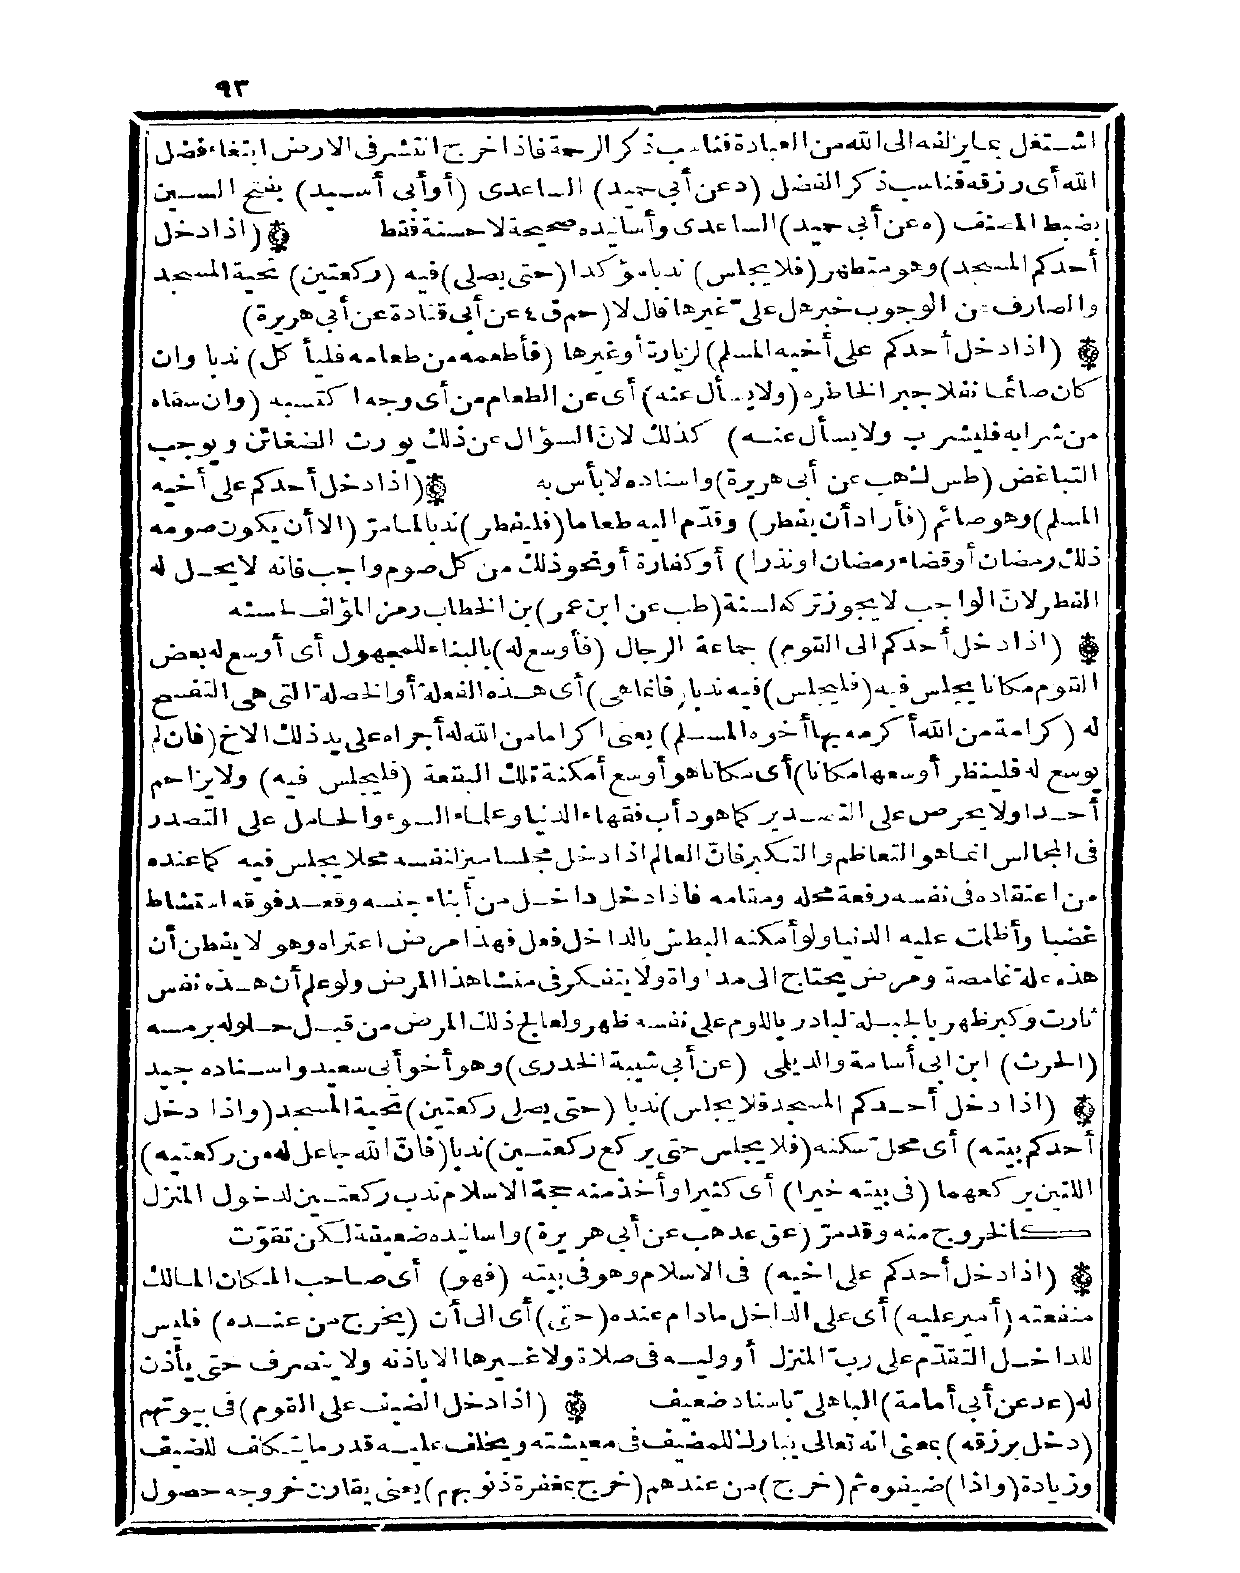 ٩٣
اشتغل بما يزلفه الى الله من العبادة فناسب ذكر الرحمة فاذا خرج انتشر فى الارض ابتغاء فضل
الله أى رزقه فناسب ذكر الفضل (د عن أبي حميد) الساعدى (أو أبى أسيد) بفتح السين
بضبط المصنف (ه عن أبي حميد) الساعدى وأسانيده صحيحة لا حسنة فقط ۞ (اذا دخل
أحدكم المسجد) وهو متطهر (فلا يجلس) ندبا مؤكدا (حتى يصلى) فيه (ركعتين) تحية المسجد
والصارف عن الوجوب خبر هل على غيرها قال لا (حم ق ٤ عن أبى قتادة عن أبى هريرة)
۞ (اذا دخل أحدكم على أخيه المسلم) لزيارة أو غيرها (فأطعمه من طعامه فليأكل) ندبا وان
كان صائما نفلا جبر الخاطره (ولا يسأل عنه) أى عن الطعام من أى وجه اكتسبه (وان سقاه
من شرابه فليشرب ولا يسأل عنه) كذلك لان السؤال عن ذلك يورث الضغائن ويوجب
التباغض (طس ك هب عن أبى هريرة) واسناده لا بأس به ۞ (اذا دخل أحدكم على أخيه
المسلم) وهو صائم (فأراد أن يفطر) وقدّم اليه طعاما (فليفطر) ندبا لما مرّ (الا أن يكون صومه
ذلك رمضان أو قضاء رمضان او نذرا) أو كفارة أو نحو ذلك من كل صوم واجب فانه لا يحل له
الفطر لانّ الواجب لا يجوز تركه لسنة (طب عن ابن عمر) بن الخطاب رمز المؤلف لحسنه
۞ (اذا دخل أحدكم الى القوم) جماعة الرجال (فأوسع له) بالبناء للمجهول أى أوسع له بعض
القوم مكانا يجلس فيه (فليجلس) فيه ندبا (فانما هى) أى هذه الفعلة أو الخصلة التى هى التفسح
له (كرامة من الله أكرمه بها أخوه المسلم) يعنى اكراما من الله له أجراه على يد ذلك الاخ (فان لم
يوسع له فلينظر أوسعها مكانا) أى مكانا هو أوسع أمكنة تلك البقعة (فليجلس فيه) ولا يزاحم
أحدا ولا يحرص على التصدير كما هو دأب فقهاء الدنيا وعلماء السوء والحامل على التصدر
فى المجالس انما هو التعاظم والتكبر فانّ العالم اذا دخل مجلسا ميز لنفسه محلا يجلس فيه كما عنده
من اعتقاده فى نفسه رفعة محله ومقامه فاذا دخل داخل من أبناء جنسه وقعد فوقه استشاط
غضبا وأظلمت عليه الدنيا ولو أمكنه البطش بالداخل فعل فهذا مرض اعتراه وهو لا يفطن أن
هذه علة غامضة ومرض يحتاج الى مداواة ولا يتفكر فى منشا هذا المرض ولو علم أن هذه نفس
ثارت وكبر ظهر بالجبلة لبادر باللوم على نفسه ظهر ولعالج ذلك المرض من قبل حلوله برمسه
(الحرث) ابن ابى أسامة والديلمى (عن أبي شيبة الخدرى) وهو أخو أبى سعيد واسناده جيد
۞ (اذا دخل أحدكم المسجد فلا يجلس) ندبا (حتى يصلى ركعتين) تحية المسجد (واذا دخل
أحدكم بيته) أى محل سكنه (فلا يجلس حتى يركع ركعتين) ندبا (فانّ الله جاعل له من ركعتيه)
اللتين يركعهما (فى بيته خيرا) أى كثيرا وأخذ منه حجة الاسلام ندب ركعتين لدخول المنزل
كالخروج منه وقد مرّ (عق عد هب عن أبي هريرة) واسانيده ضعيفة لكن تقوّت
۞ (اذا دخل أحدكم على اخيه) فى الاسلام وهو فى بيته (فهو) أى صاحب المكان المالك
منفعته (أمير عليه) أى على الداخل مادام عنده (حتى) أى الى أن (يخرج من عنده) فليس
للداخل التقدّم على ربّ المنزل أو وليه فى صلاة ولا غيرها الا باذنه ولا ينصرف حتى يأذن
له (عد عن أبي أمامة) الباهلى باسناد ضعيف ۞ (اذا دخل الضيف على القوم) فى بيوتهم
(دخل برزقه) بمعنى انه تعالى يبارك للمضيف فى معيشته ويخلف عليه قدر ما يتكلف للضيف
وزيادة (واذا) ضيفوه ثم (خرج) من عندهم (خرج بمغفرة ذنوبهم) يعنى يقارن خروجه حصول